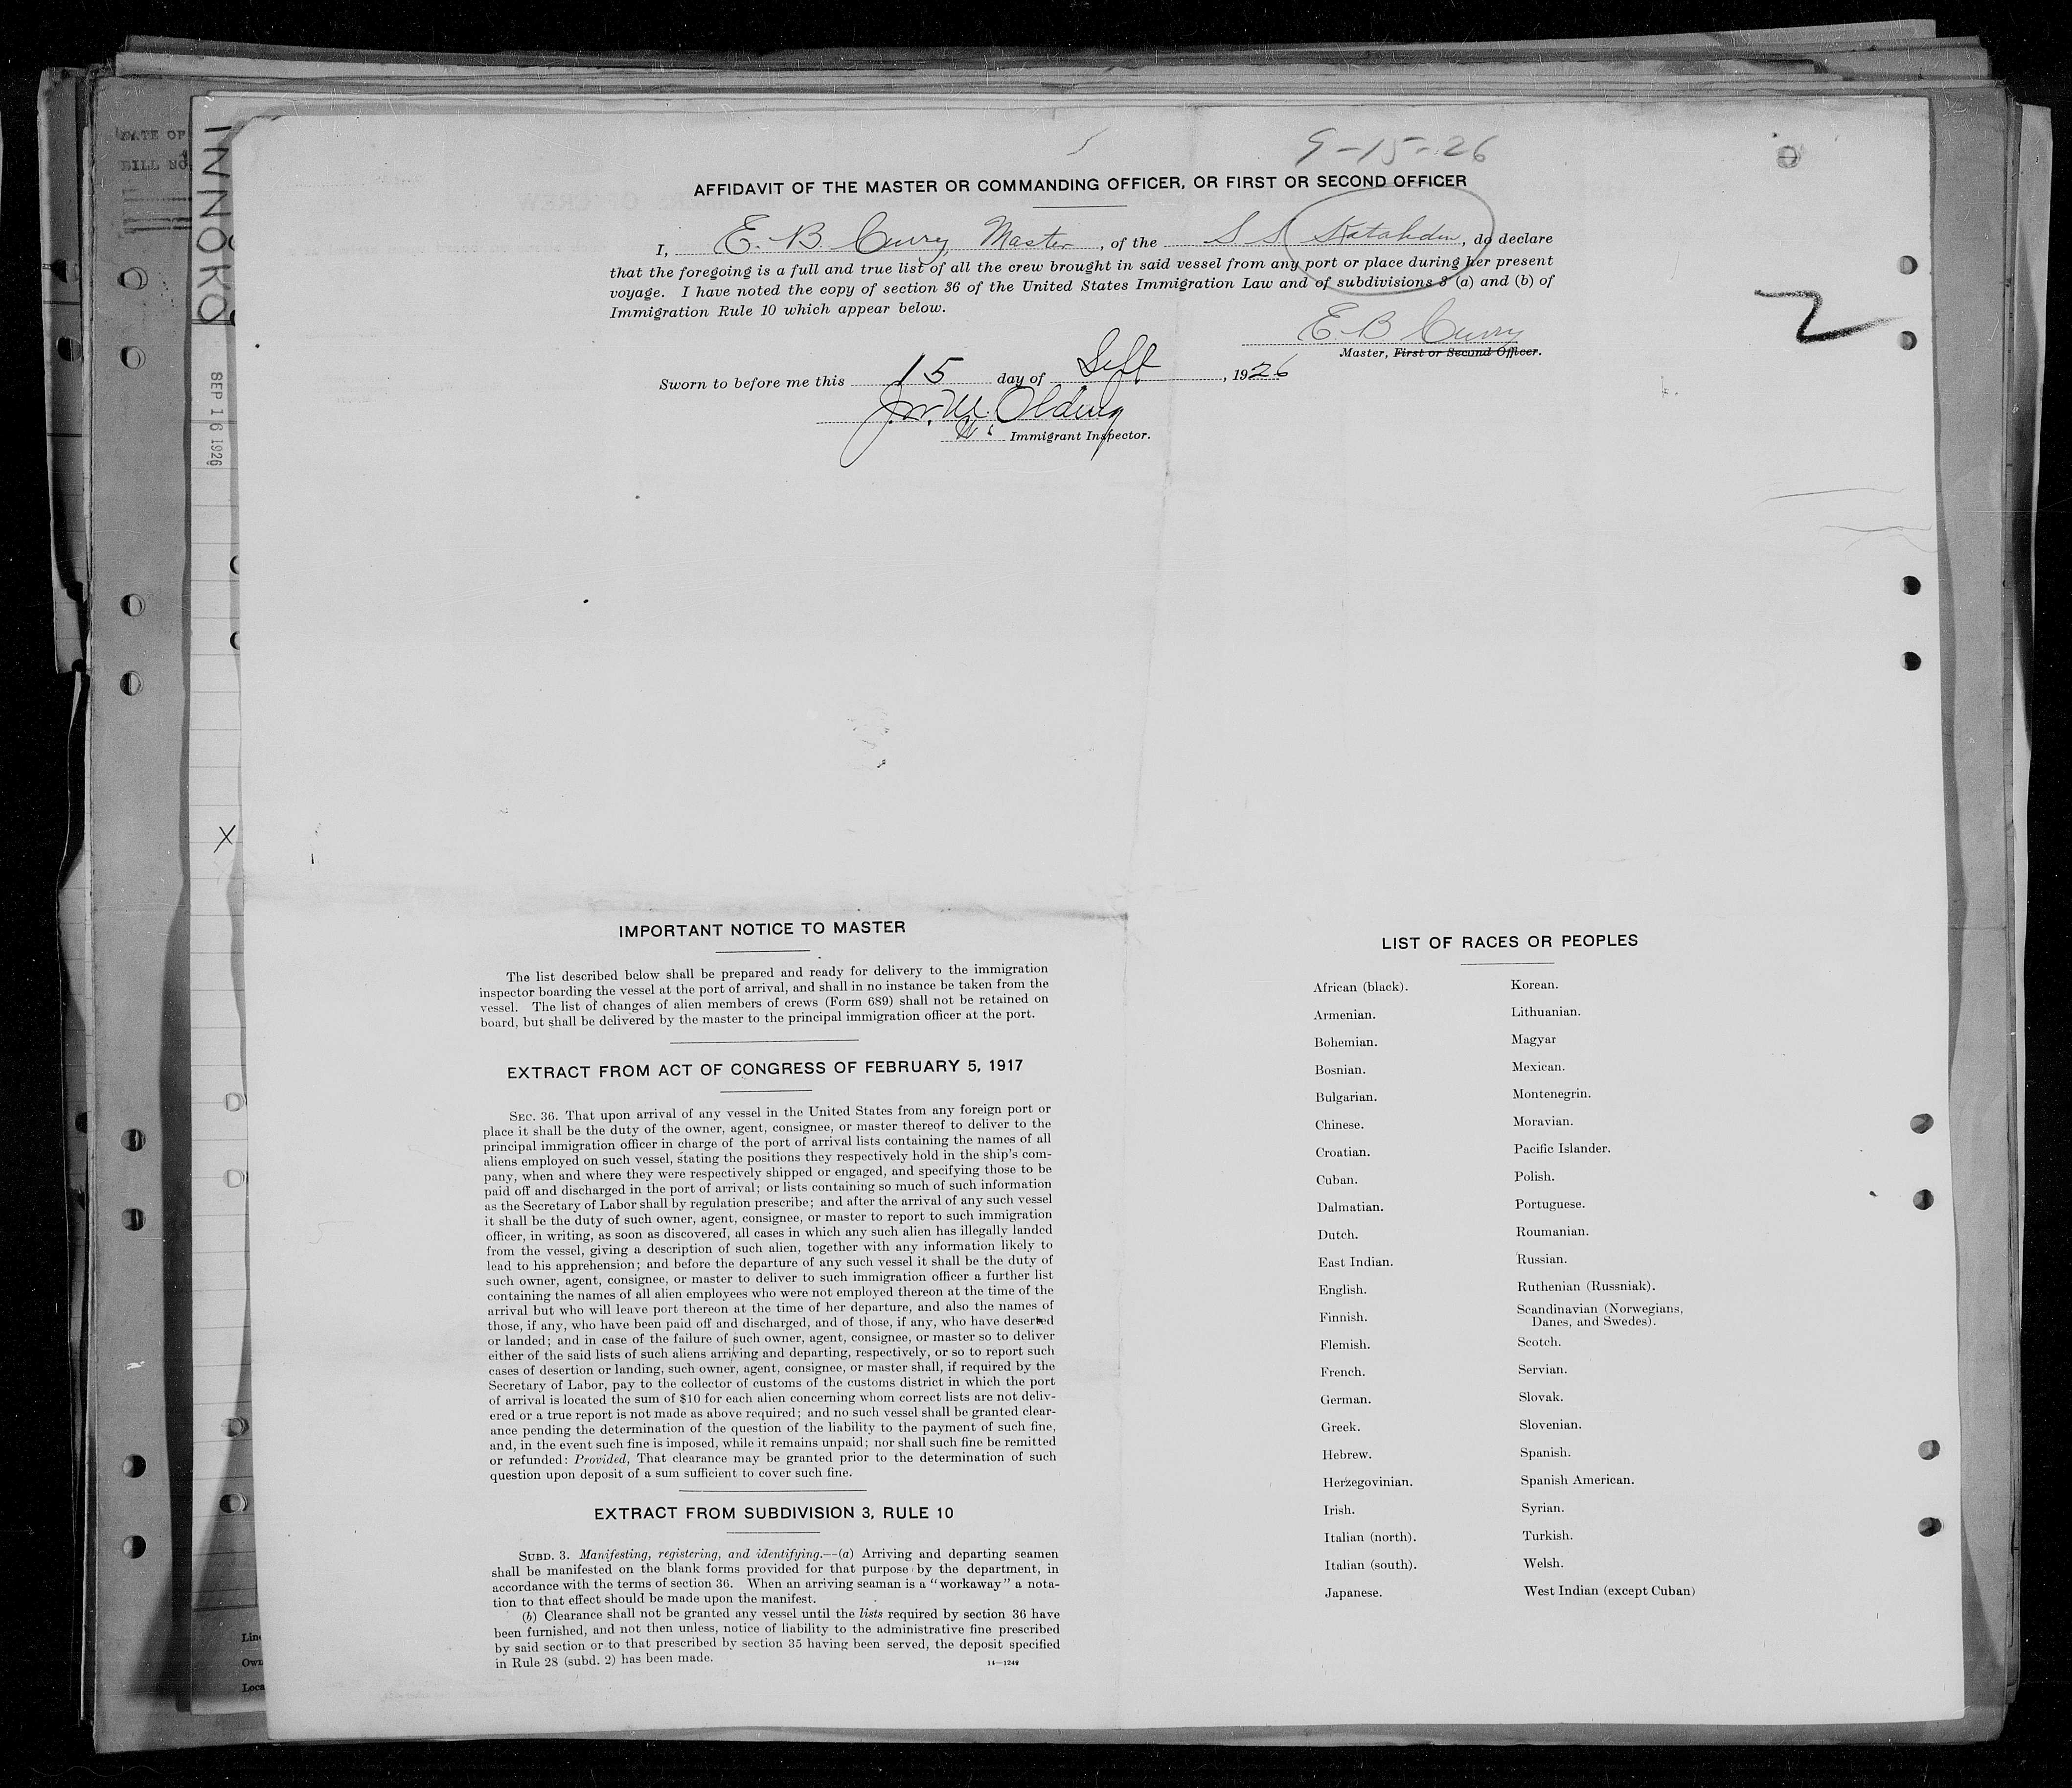 DATE OF
BILL NO
INNOKO
SEP 16 1926
X
9-15-26
AFFIDAVIT OF THE MASTER OR COMMANDING OFFICER, OR FIRST OR SECOND OFFICER
I, E. B Curry, Master, of the S S Katahdin, do declare
that the foregoing is a full and true list of all the crew brought in said vessel from any port or place during her present
voyage. I have noted the copy of section 36 of the United States Immigration Law and of subdivisions 3 (a) and (b) of
Immigration Rule 10 which appear below.
E. B Curry
Master, First or Second Officer.
2
Sworn to before me this 15 day of Sept, 1926
Olding
Immigrant Inspector.
IMPORTANT NOTICE TO MASTER
The list described below shall be prepared and ready for delivery to the immigration
inspector boarding the vessel at the port of arrival, and shall in no instance be taken from the
vessel. The list of changes of alien members of crews (Form 689) shall not be retained on
board, but shall be delivered by the master to the principal immigration officer at the port.
EXTRACT FROM ACT OF CONGRESS OF FEBRUARY 5, 1917
SEC. 36. That upon arrival of any vessel in the United States from any foreign port or
place it shall be the duty of the owner, agent, consignee, or master thereof to deliver to the
principal immigration officer in charge of the port of arrival lists containing the names of all
aliens employed on such vessel, stating the positions they respectively hold in the ship's com-
pany, when and where they were respectively shipped or engaged, and specifying those to be
paid off and discharged in the port of arrival; or lists containing so much of such information
as the Secretary of Labor shall by regulation prescribe; and after the arrival of any such vessel
it shall be the duty of such owner, agent, consignee, or master to report to such immigration
officer, in writing, as soon as discovered, all cases in which any such alien has illegally landed
from the vessel, giving a description of such alien, together with any information likely to
lead to his apprehension; and before the departure of any such vessel it shall be the duty of
such owner, agent, consignee, or master to deliver to such immigration officer a further list
containing the names of all alien employees who were not employed thereon at the time of the
arrival but who will leave port thereon at the time of her departure, and also the names of
those, if any, who have been paid off and discharged, and of those, if any, who have deserted
or landed; and in case of the failure of such owner, agent, consignee, or master so to deliver
either of the said lists of such aliens arriving and departing, respectively, or so to report such
cases of desertion or landing, such owner, agent, consignee, or master shall, if required by the
Secretary of Labor, pay to the collector of customs of the customs district in which the port
of arrival is located the sum of $10 for each alien concerning whom correct lists are not deliv-
ered or a true report is not made as above required; and no such vessel shall be granted clear-
ance pending the determination of the question of the liability to the payment of such fine,
and, in the event such fine is imposed, while it remains unpaid; nor shall such fine be remitted
or refunded: Provided, That clearance may be granted prior to the determination of such
question upon deposit of a sum sufficient to cover such fine.
EXTRACT FROM SUBDIVISION 3, RULE 10
SUBD. 3. Manifesting, registering, and identifying.—(a) Arriving and departing seamen
shall be manifested on the blank forms provided for that purpose by the department, in
accordance with the terms of section 36. When an arriving seaman is a "workaway" a nota-
tion to that effect should be made upon the manifest.
(b) Clearance shall not be granted any vessel until the lists required by section 36 have
been furnished, and not then unless, notice of liability to the administrative fine prescribed
by said section or to that prescribed by section 35 having been served, the deposit specified
in Rule 28 (subd. 2) has been made.
14—1249
LIST OF RACES OR PEOPLES
African (black).
Armenian.
Bohemian.
Bosnian.
Bulgarian.
Chinese.
Croatian.
Cuban.
Dalmatian.
Dutch.
East Indian.
English.
Finnish.
Flemish.
French.
German.
Greek.
Hebrew.
Herzegovinian.
Irish.
Italian (north).
Italian (south).
Japanese.
Korean.
Lithuanian.
Magyar
Mexican.
Montenegrin.
Moravian.
Pacific Islander.
Polish.
Portuguese.
Roumanian.
Russian.
Ruthenian (Russniak).
Scandinavian (Norwegians,
Danes, and Swedes).
Scotch.
Servian.
Slovak.
Slovenian.
Spanish.
Spanish American.
Syrian.
Turkish.
Welsh.
West Indian (except Cuban)